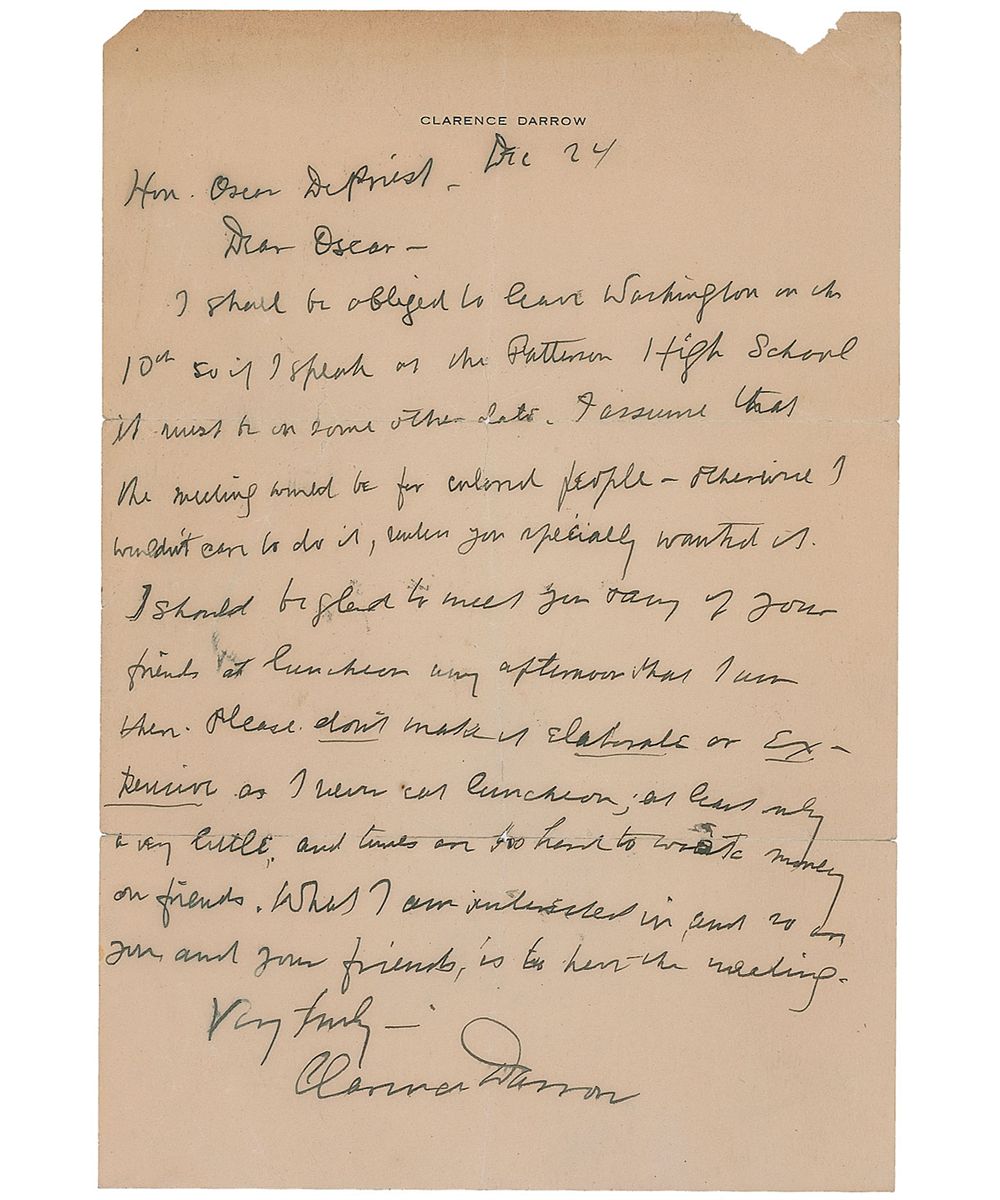 CLARENCE DARROW
Dec 24
Hon. Oscar DePriest -
Dear Oscar -
I shall be obliged to leave Washington on the
10th so if I speak at the Patterson High School
it must be on some other date. I assume that
the meeting would be for colored people - otherwise I
wouldn't care to do it, unless you specially wanted it.
I should be glad to meet you & any of your
friends at luncheon any afternoon that I am
there. Please don't make it elaborate or ex-
pensive as I never eat luncheon; at least only
a very little, and times are too hard to waste money
on friends. What I am interested in, and so are
you, and your friends, is to have the meeting.
Very truly -
Clarence Darrow